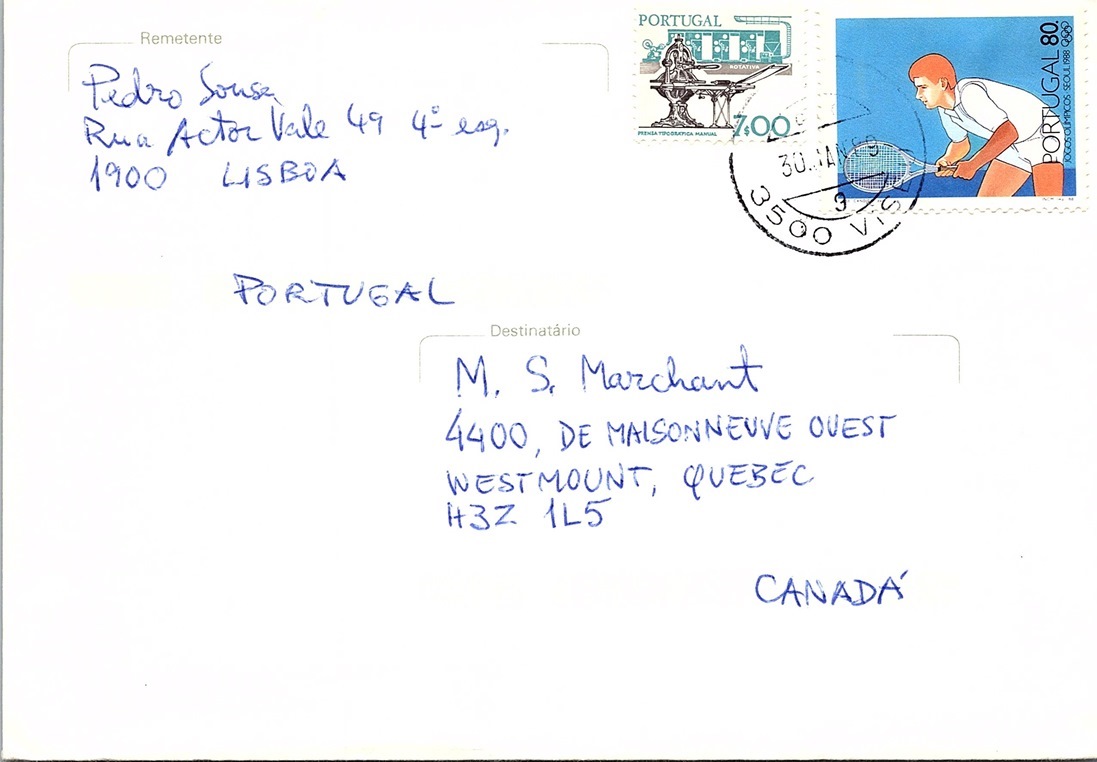 Remetente
Pedro Sousa
Rua Actor Vale 49 4º esq.
1900 LISBOA
PORTUGAL
PORTUGAL
ROTATIVA
PRENSA TIPOGRÁFICA MANUAL
7$00
PORTUGAL 80.
JOGOS OLÍMPICOS SEOUL 1988
30.JAN.89
9
3500 VISE
Destinatário
M. S. Marchant
4400, DE MAISONNEUVE OUEST
WESTMOUNT, QUEBEC
H3Z 1L5
CANADÁ